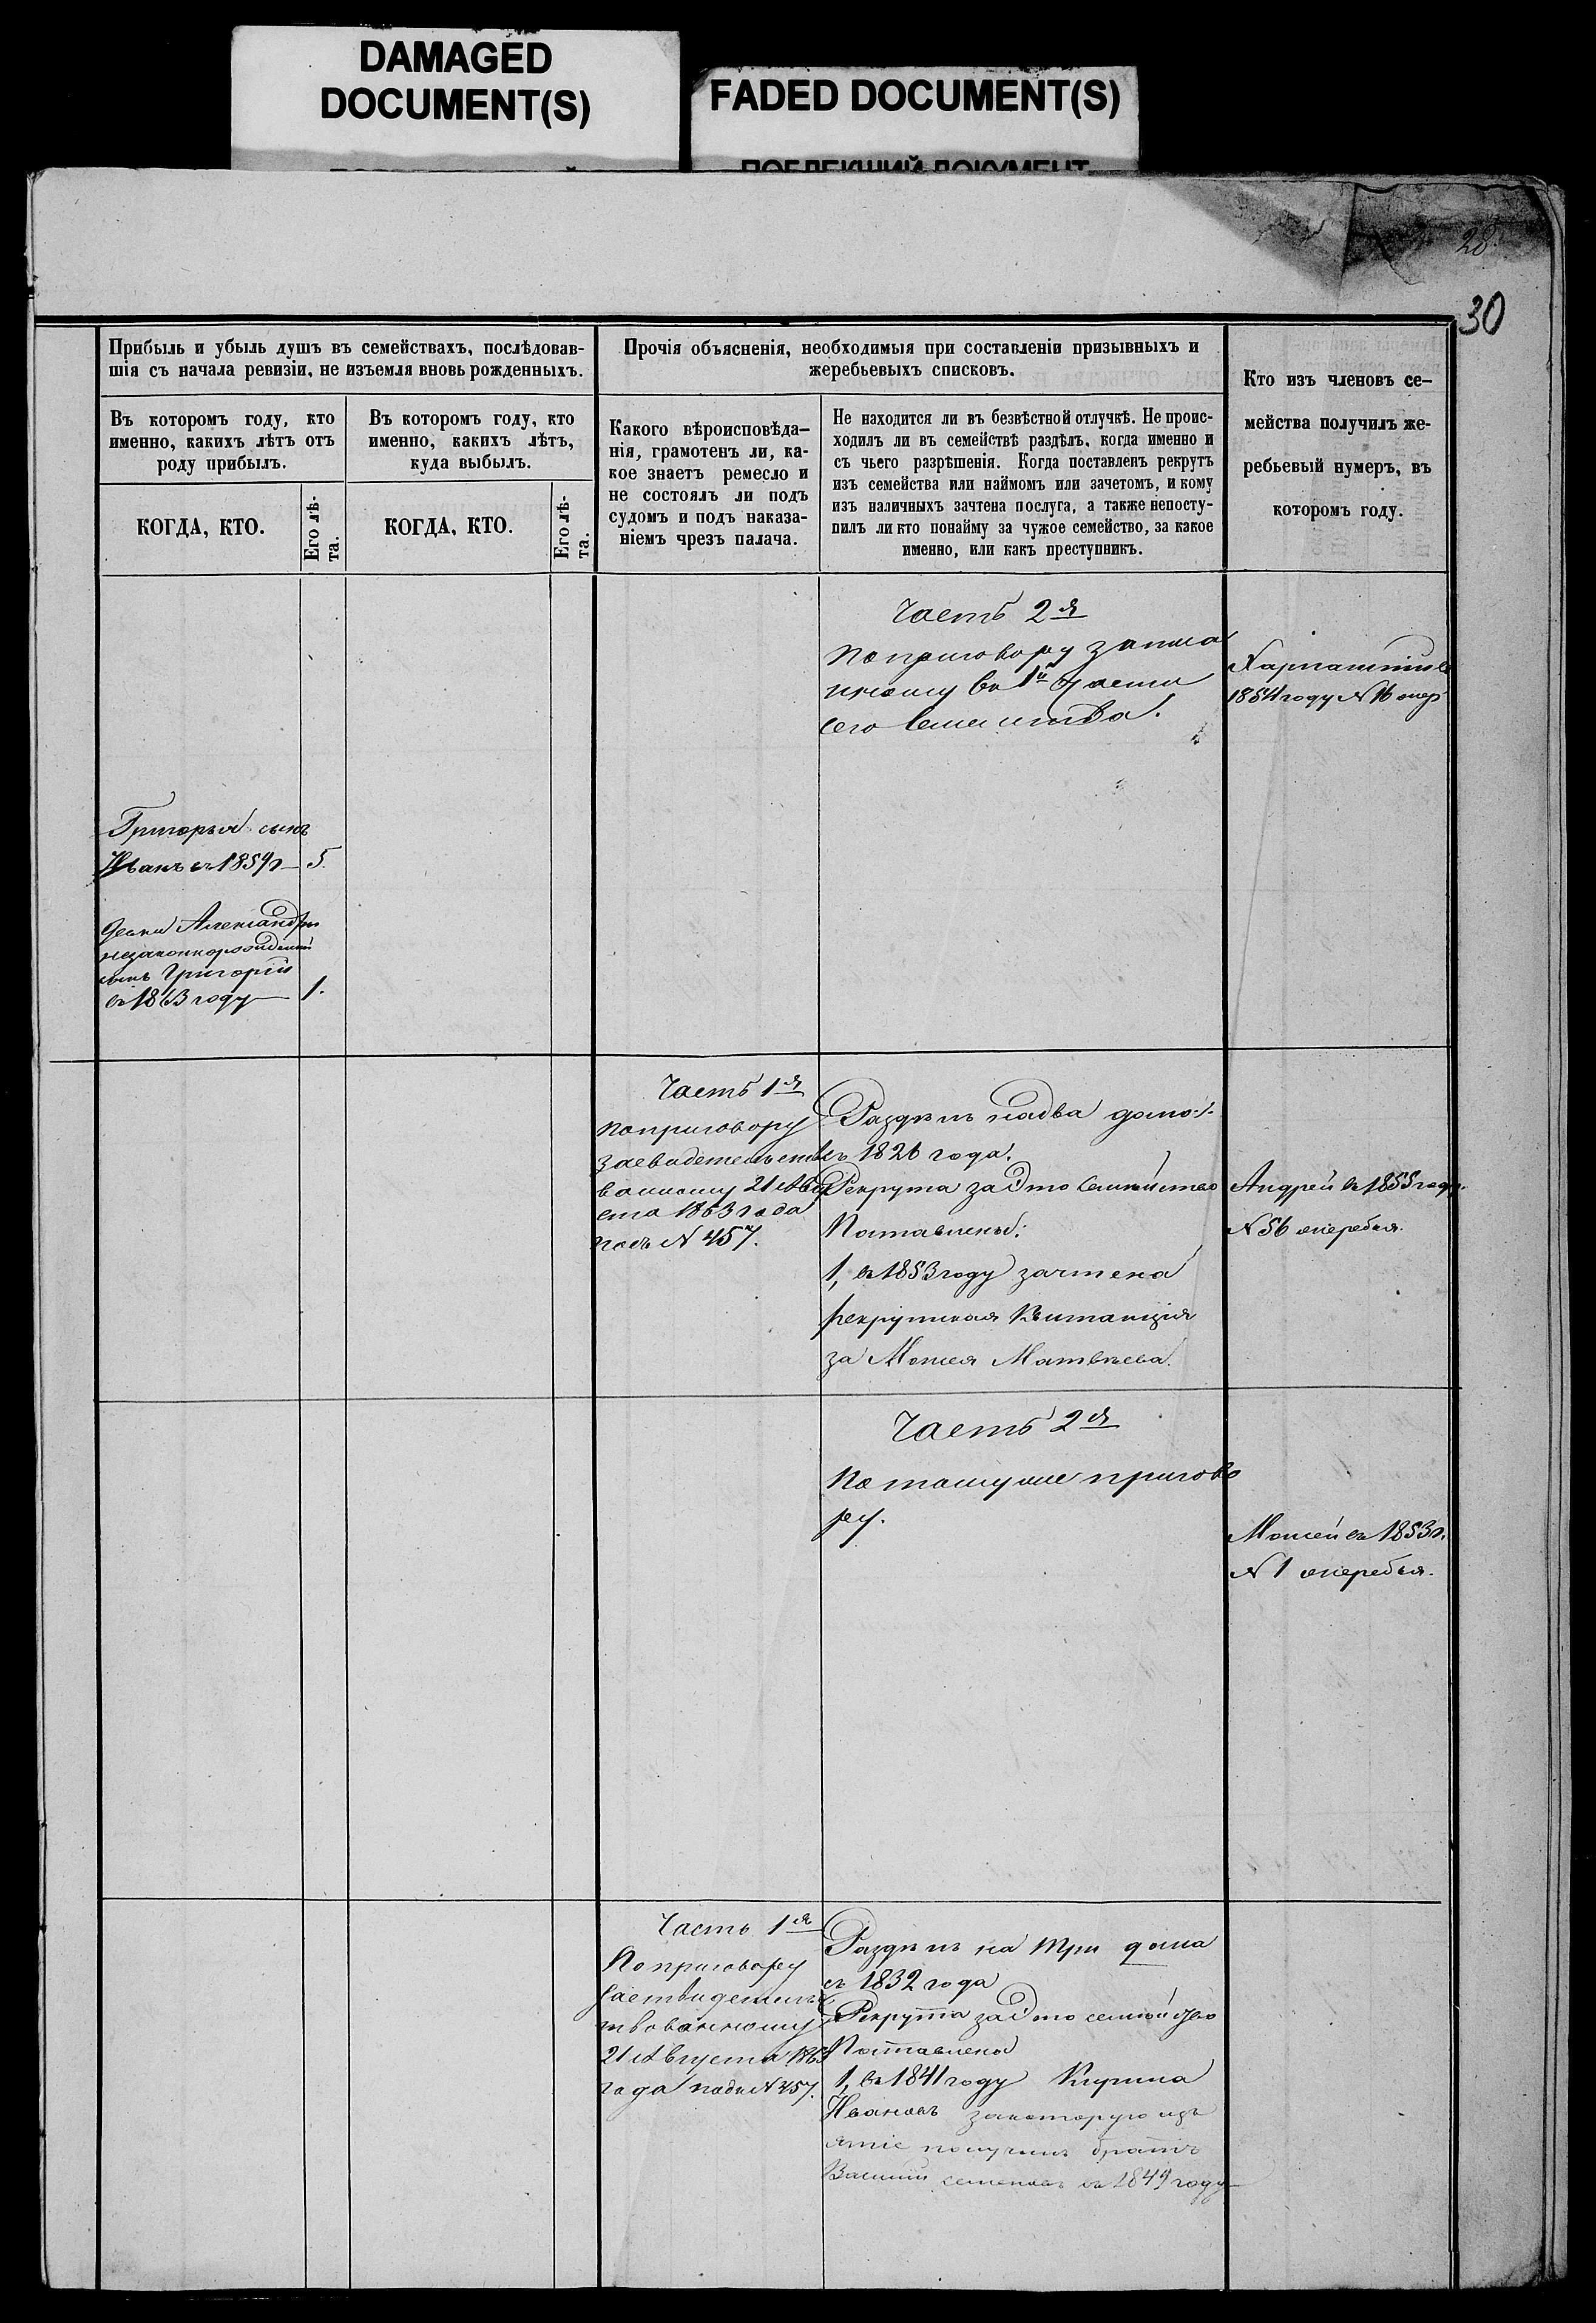 DAMAGED
DOCUMENT(S)
FADED DOCUMENT(S)
ПОБЛЕКШИЙ ДОКУМЕНТ
28.
30
Прибыль и убыль душъ въ семействахъ, послѣдовав-
шія съ начала ревизіи, не изъемля вновь рожденныхъ.
Въ которомъ году, кто
именно, какихъ лѣтъ отъ
роду прибылъ.
КОГДА, КТО.
Его лѣ-
та.
Въ которомъ году, кто
именно, какихъ лѣтъ,
куда выбылъ.
КОГДА, КТО.
Его лѣ-
та.
Прочія объясненія, необходимыя при составленіи призывныхъ и
жеребьевыхъ списковъ.
Какого вѣроисповѣда-
нія, грамотенъ ли, ка-
кое знаетъ ремесло и
не состоялъ ли подъ
судомъ и подъ наказа-
ніемъ чрезъ палача.
Не находится ли въ безвѣстной отлучкѣ. Не проис-
ходилъ ли въ семействѣ раздѣлъ, когда именно и
съ чьего разрѣшенія. Когда поставленъ рекрутъ
изъ семейства или наймомъ или зачетомъ, и кому
изъ наличныхъ зачтена послуга, а также непосту-
пилъ ли кто понайму за чужое семейство, за какое
именно, или какъ преступникъ.
Кто изъ членовъ се-
мейства получилъ же-
ребьевый нумеръ, въ
которомъ году.
Часть 2я
По приговору записа
нному въ 1й части
сего семейства.
1854 году N 16 жер
Григорья сынъ
Иванъ въ 1859 г 5.
Александры
незаконнорожденный
сынъ Григорій
въ 1863 году 1.
Часть 1я
По приговору
засвидетельство
ванному 21 Авгу
ста 1863 года
подъ N 457.
Раздѣлъ на два дома
съ 1826 года.
Рекрута за это семейство
Поставлены:
1, въ 1853 году зачтена
рекрутская квитанція
за Мосея Матвѣева.
Андрей въ 1855 году
N 56 жеребья.
Часть 2я
По тому же пригово
ру.
Мосей въ 1853 г.
N 1 жеребья.
Часть 1я
По приговору
засвидетельс
твованному
21 Августа 1863
года подъ N 457.
Раздѣлъ на три дома
съ 1832 года
Рекрута за это семейство
Поставлена
1, въ 1841 году
Ивановъ за которую кв
получилъ братъ
Василій въ 1849 году